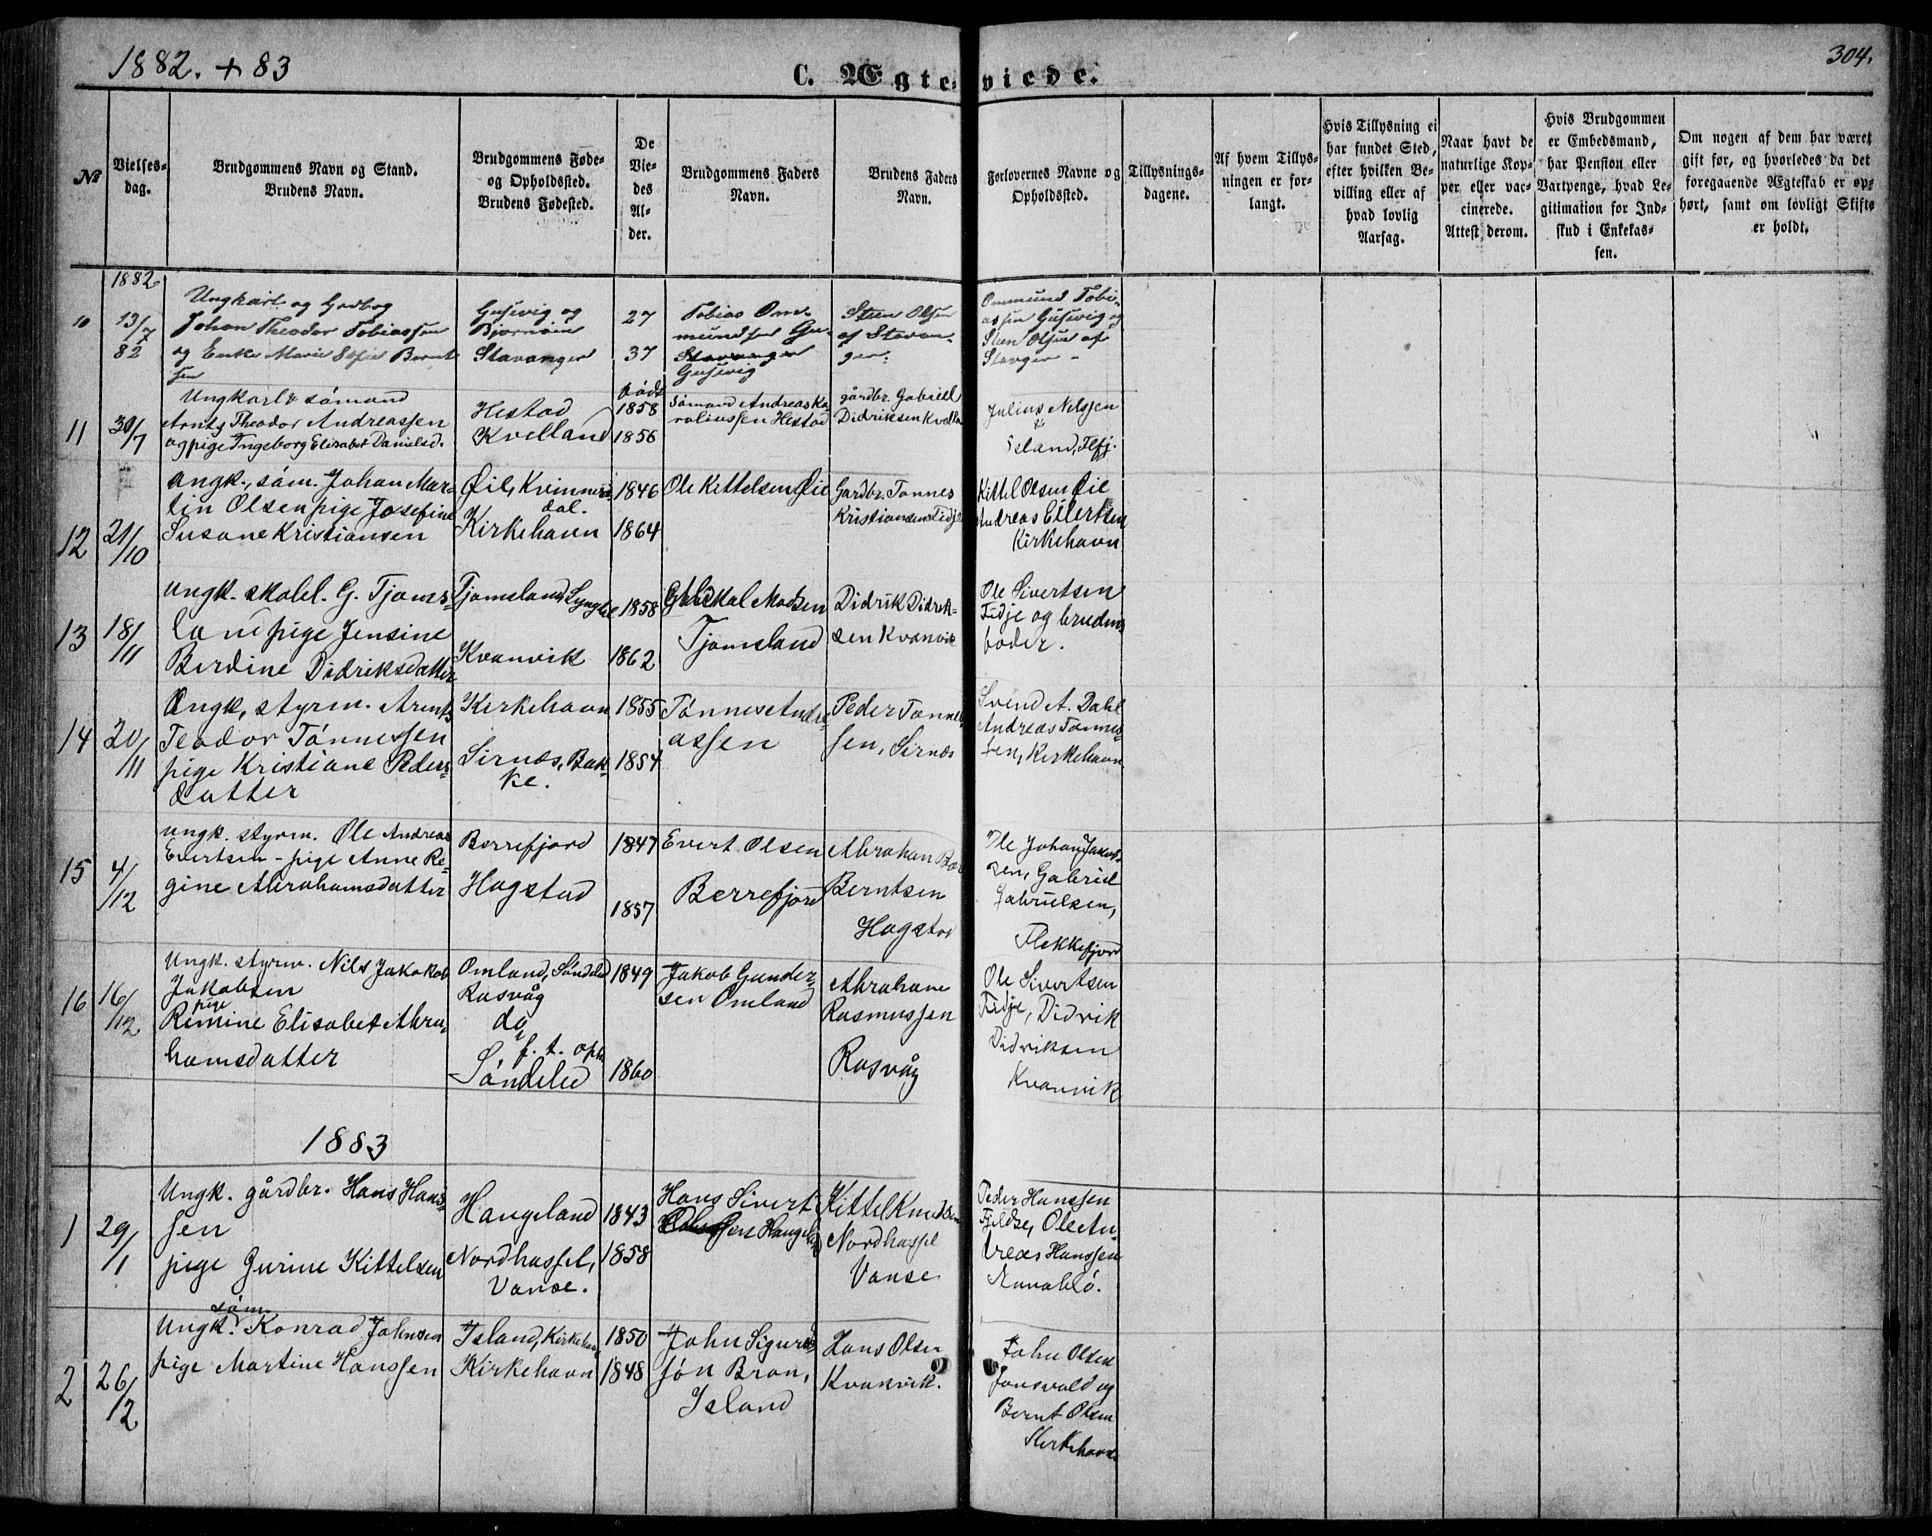 1882. + 83
304.
C. Ægte-viede.
No
Vielses-
dag.
Brudgommens Navn og Stand.
Brudens Navn.
Brudgommens Føde-
og Opholdssted.
Brudens Fødested.
De
Vie-
des
Al-
der.
Brudgommens Faders
Navn.
Brudens Faders
Navn.
Forlovernes Navne og
Opholdssted.
Tillysnings-
dagene.
Af hvem Tillys-
ningen er for-
langt.
Hvis Tillysning ei
har fundet Sted,
efter hvilken Be-
villing eller af
hvad lovlig
Aarsag.
Naar havt de
naturlige Kop-
per eller vac-
cinerede.
Attest derom.
Hvis Brudgommen
er Embedsmand,
har Pension eller
Vartpenge, hvad Le-
gitimation for Ind-
skud i Enkekas-
sen.
Om nogen af dem har været
gift før, og hvorledes da det
foregaaende Ægteskab er op-
hørt, samt om lovligt Skifte
er holdt.
1882
10
13/7
82
Ungkarl og Gadbog
Johan Theodor Tobiassen
og Enke Marie Sofie Bernt
sen
Gusevig og
Stavanger
27
37
Tobias Om-
mundsen Gu-
Stavanger
Gusevig
Steen Olsen
af Stavan-
ger.
Ommund Tobi-
assen Gusevig og
Steen Olsen af
11
30/7
Ungkarl & sømand
Arnts Theodor Andreassen
og pige Ingeborg Elisabet Danielsd.
Hestad
Kvelland
født
1858
1856
Sømand Andreas Ka-
roliussen Hestad
gårdbr. Gabriel
Didriksen Kvella
Julius Nilssen
Island, Flfj.
12
21/10
Ungk., søm. Johan Mar-
tin Olsen pige Josefine
Susane Kristiansen
Øie, Kvinnes-
dal.
Kirkehavn
1846
1864
Ole Kittelsen Øie
Gardbr. Tønnes
Kristiansen Fidje
Kittel Olsen Øie
Andreas Ellertsen
Kirkehavn
13
18/11
Ungk. skolel. G. Tjoms-
land pige Jensine
Berdine Didriksdatter
Tjomsland, Lyngdal
Kvanvik
1858
1862
Madsen
Tjomsland
Didrik Didrik-
sen Kvanvik
Ole Sivertsen
Fidje og brudens
boder.
14
20/11
Ungk, styrm. Arents
Teodor Tønnessen
pige Kristiane Peders-
datter
Kirkehavn
Sirnæs, Bak-
ke.
1855
1854
Tønnes Andre-
assen
Peder Tønnes
sen, Sirnæs
Svend A. Dahl
Andreas Tønnes-
sen, Kirkehavn
15
4/12
Ungk. styrm. Ole Andreas
Evertsen - pige Anne Re-
gine Abrahamsdatter
Berrefjord
Hogstad
1847
1857
Evert Olsen
Berrefjord
Abraham
Berntsen
Hogstad
Ole Johan Jakob-
sen, Gabriel
Gabrielsen,
Flekkefjord
16
16/12
Ungk. styrm. Nils Jakob
Jakobsen
pige
Remine Elisabet Abra-
hamsdatter
Omland, Søndeled
Rasvåg
do
f. t. oph
Søndeled
1849
1860
Jakob Gunder-
sen Omland
Abraham
Rasmussen
Rasvåg
Ole Sivertsen
Fidje, Didrik
Didriksen
Kvanvik
1883
1
29/1
Ungk. gårdbr. Hans Hans-
sen
pige Gurine Kittelsen
Haugeland
Nordhassel,
Vanse.
1843
1858
Hans Sivert
sen Haugeland
Kittel Knudsen
Nordhassel
Vanse
Peder Hanssen
Fjeldse, Ole An-
dreas Hanssen
Annabø.
2
26/2
søm.
Ungk. Konrad Johnsen
pige Martine Hanssen
Island, Kirkehavn
Kirkehavn
1850
1848
John Sigurd-
søn Bron,
Island
Hans Olsen
Kvanvik.
John Olsen
Jonsvold og
Bernt Olsen
Kirkehavn